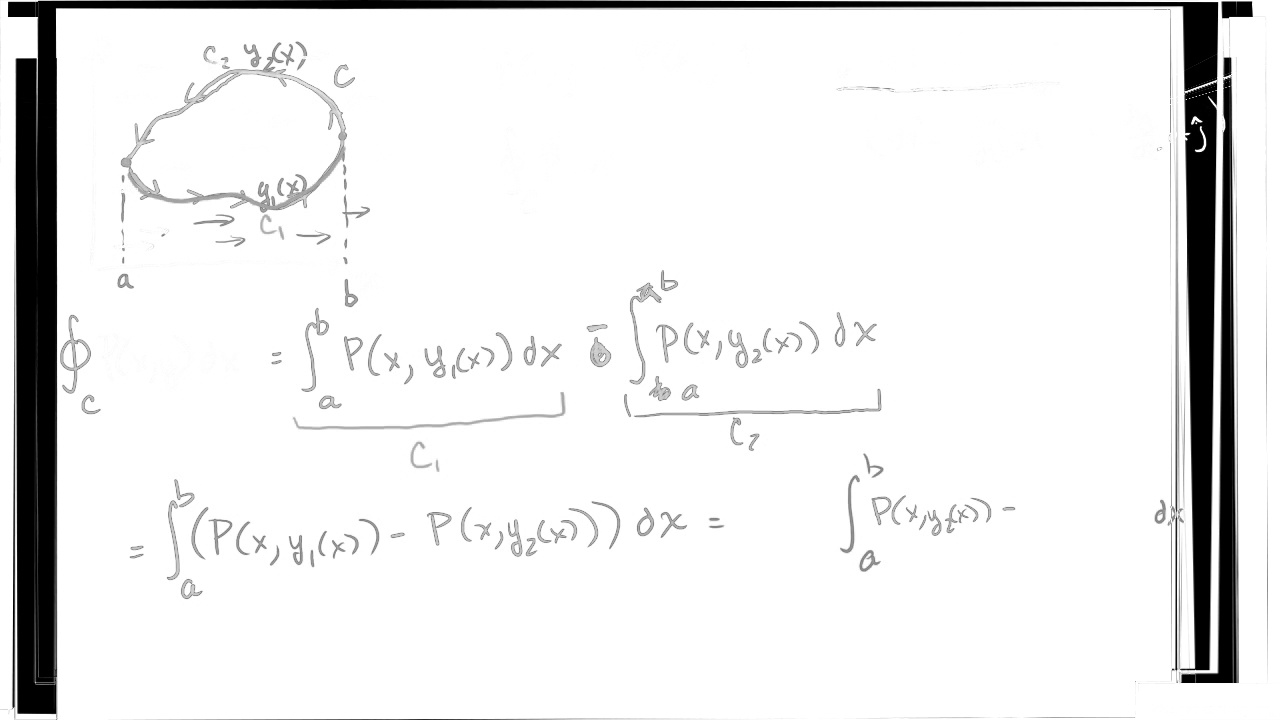 C₂ y₂(x)
C
y₁(x)
C₁
a
b
∮_C = ∫_a^b P(x, y₁(x)) dx - ∫_a^b P(x, y₂(x)) dx
C₁
C₂
= ∫_a^b (P(x, y₁(x)) - P(x, y₂(x))) dx = ∫_a^b P(x, y₂(x)) - dx
ĵ)